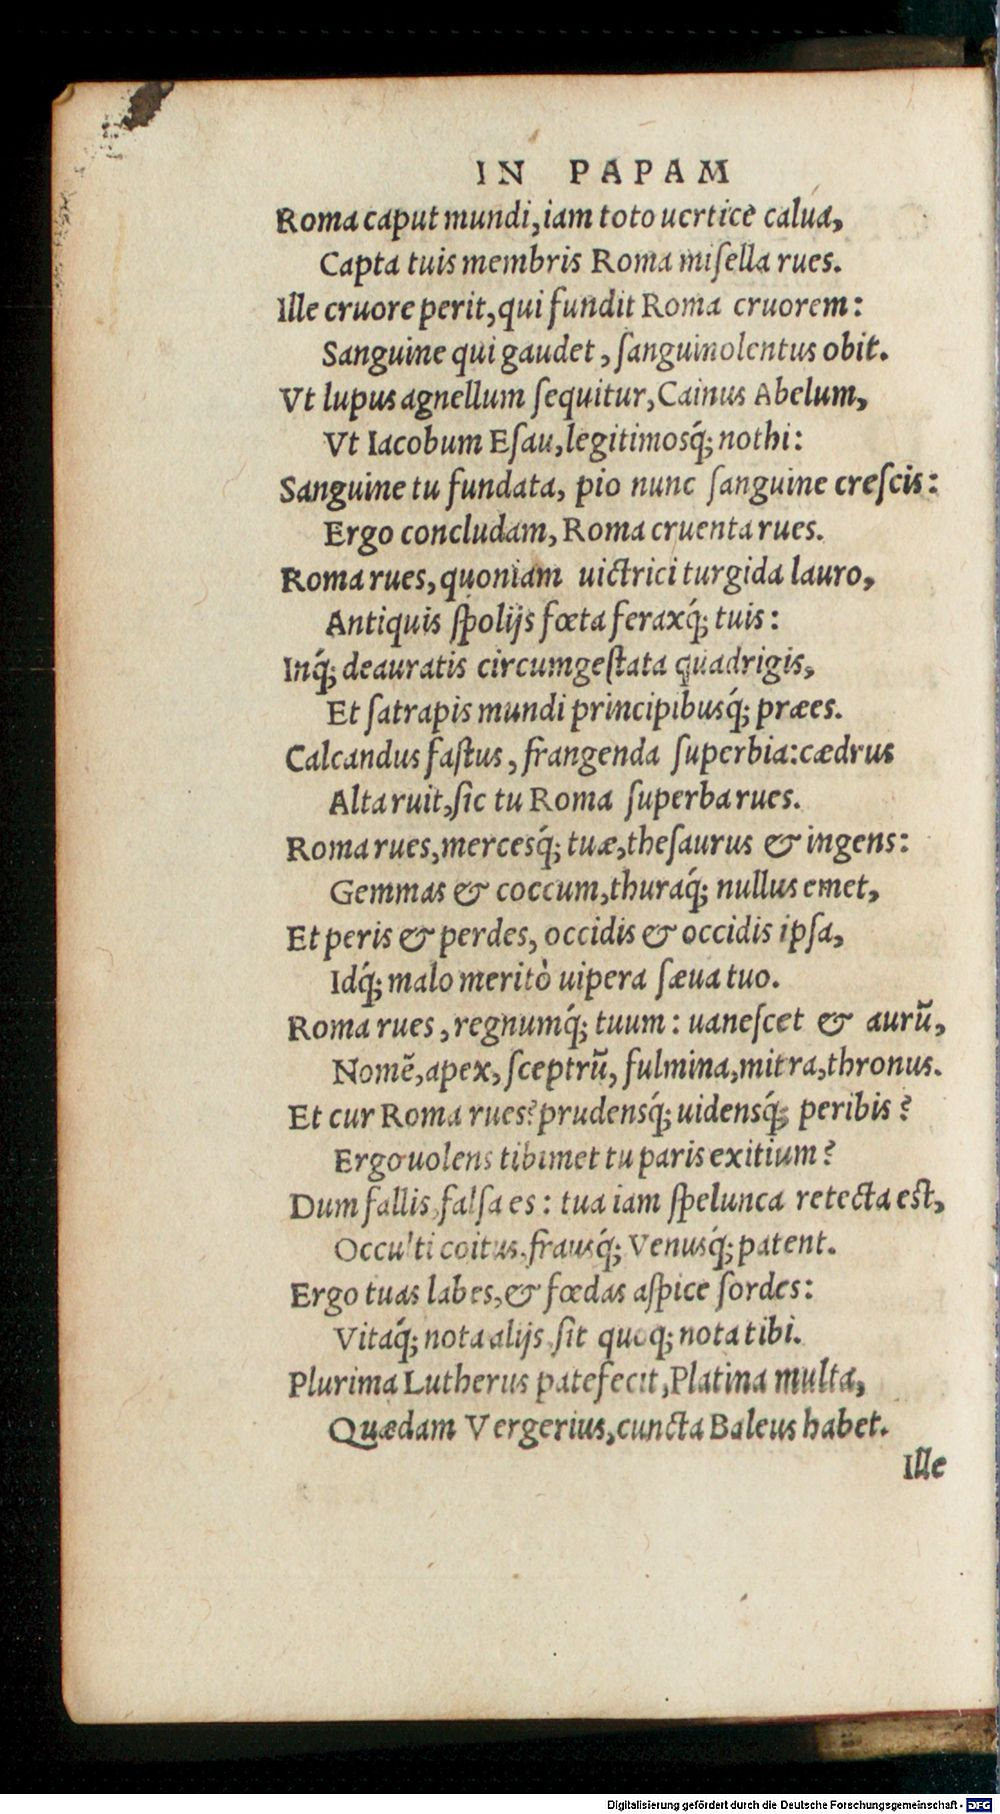 IN PAPAM
Roma caput mundi, iam toto uertice calua,
Capta tuis membris Roma miſella rues.
Ille cruore perit, qui fundit Roma cruorem:
Sanguine qui gaudet, ſanguinolentus obit.
Vt lupus agnellum ſequitur, Cainus Abelum,
Vt Iacobum Eſau, legitimosq́; nothi:
Sanguine tu fundata, pio nunc ſanguine creſcis:
Ergo concludam, Roma cruenta rues.
Roma rues, quoniam uictrici turgida lauro,
Antiquis ſpolijs fœta feraxq́; tuis:
Inq́; deauratis circumgeſtata quadrigis,
Et ſatrapis mundi principibusq́; præes.
Calcandus faſtus, frangenda ſuperbia: cædrus
Alta ruit, ſic tu Roma ſuperba rues.
Roma rues, mercesq́; tuæ, theſaurus & ingens:
Gemmas & coccum, thuraq́; nullus emet,
Et peris & perdes, occidis & occidis ipſa,
Idq́; malo meritò uipera ſæua tuo.
Roma rues, regnumq́; tuum: uaneſcet & aurũ,
Nomẽ, apex, ſceptrũ, fulmina, mitra, thronus.
Et cur Roma rues? prudensq́; uidensq́; peribis?
Ergo uolens tibimet tu paris exitium?
Dum fallis, falſa es: tua iam ſpelunca retecta eſt,
Occulti coitus, frausq́; Venusq́; patent.
Ergo tuas labes, & fœdas aſpice ſordes:
Vitaq́; nota alijs, ſit quoq; nota tibi.
Plurima Lutherus patefecit, Platina multa,
Quædam Vergerius, cuncta Baleus habet.
Ille
Digitalisierung gefördert durch die Deutsche Forschungsgemeinschaft - DFG